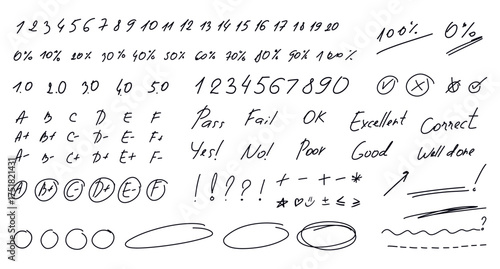 1 2 3 4 5 6 7 8 9 10 11 12 13 14 15 16 17 18 19 20
100% 0%
0% 10% 20% 30% 40% 50% 60% 70% 80% 90% 100%
1.0 2.0 3.0 4.0 5.0
1 2 3 4 5 6 7 8 9 0
A B C D E F
A+ B+ C- D- E- F+
A- B- C+ D+ E+ F-
A B+ C- D+ E- F
Pass Fail OK Excellent Correct
Yes! No! Poor Good Well done
! ! ? ? ! !
+ - + - *
± ≤ ≥
!
?
1751821431